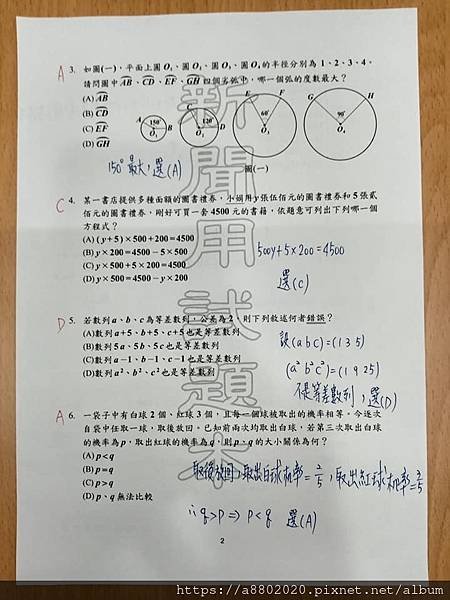 A 3. 如圖(一),平面上圓 O₁、圓 O₂、圓 O₃、圓 O₄ 的半徑分別為 1、2、3、4。
請問圖中 AB、CD、EF、GH 四個劣弧中,哪一個弧的度數最大?
(A) AB
(B) CD
(C) EF
(D) GH
A 150° B O₁
C 120° D O₂
E F 60° O₃
G H 90° O₄
圖(一)
150°最大,選(A)
C 4. 某一書店提供多種面額的圖書禮券,小娟用 y 張伍佰元的圖書禮券和 5 張貳
佰元的圖書禮券,剛好可買一套 4500 元的書籍,依題意可列出下列哪一個
方程式?
(A) (y+5)×500+200=4500
(B) y×200=4500-5×500
(C) y×500+5×200=4500
(D) y×500=4500-y×200
500y+5×200=4500
選(C)
D 5. 若數列 a、b、c 為等差數列,公差為 2,則下列敘述何者錯誤?
(A)數列 a+5、b+5、c+5 也是等差數列
(B)數列 5a、5b、5c 也是等差數列
(C)數列 a-1、b-1、c-1 也是等差數列
(D)數列 a²、b²、c² 也是等差數列
設(a b c)=(1 3 5)
(a² b² c²)=(1 9 25)
不是等差數列,選(D)
A 6. 一袋子中有白球 2 個,紅球 3 個,且每一個球被取出的機率相等。今逐次
自袋中任取一球,取後放回,已知前兩次均取出白球,若第三次取出白球
的機率為 p,取出紅球的機率為 q,則 p、q 的大小關係為何?
(A) p<q
(B) p=q
(C) p>q
(D) p、q 無法比較
取後放回,取出白球機率=2/5,取出紅球機率=3/5
∴q>p⇒p<q 選(A)
2
新聞用試題本
https://a8802020.pixnet.net/album